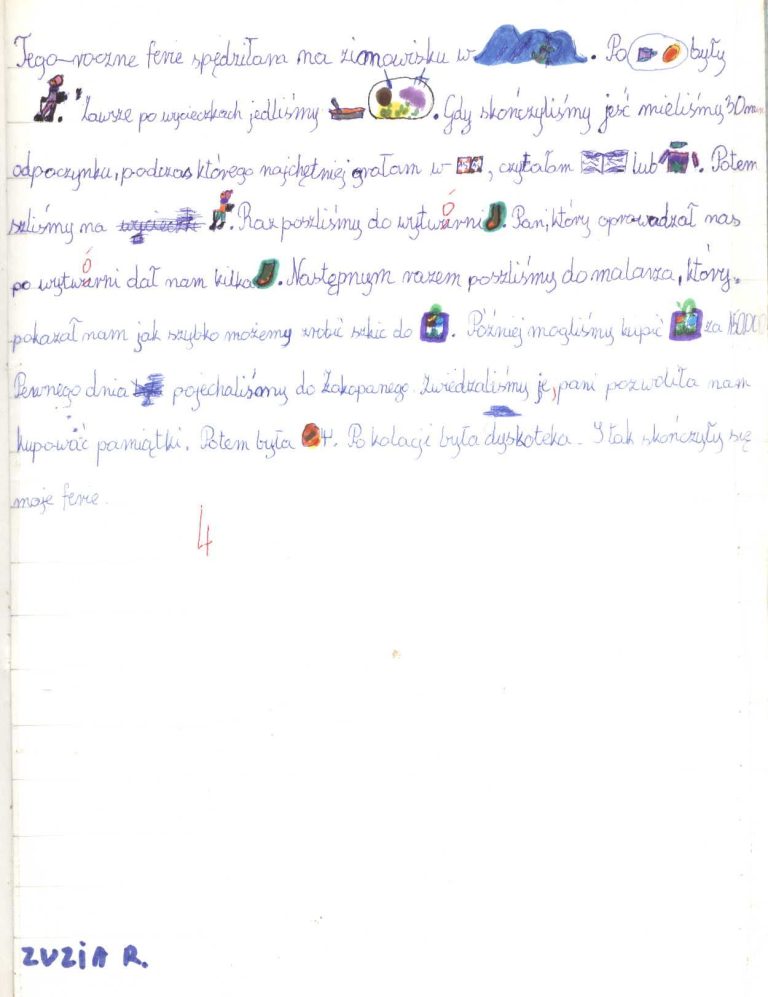 Tego-roczne ferie spędziłam na zimowisku w . Po były
. Zawsze po wycieczkach jedliśmy . Gdy skończyliśmy jeść mieliśmy 30 min
odpoczynku, podczas którego najchętniej grałam w , czytałam lub . Potem
szliśmy na . Raz poszliśmy do wytwórni . Pan, który oprowadzał nas
po wytwórni dał nam kilka . Następnym razem poszliśmy do malarza, który
pokazał nam jak szybko możemy zrobić szkic do . Później mogliśmy kupić za
Pewnego dnia pojechaliśmy do Zakopanego. Zwiedzaliśmy je, pani pozwoliła nam
kupować pamiątki. Potem była . Po kolacji była dyskoteka. I tak skończyły się
moje ferie.
4
ZUZIA R.